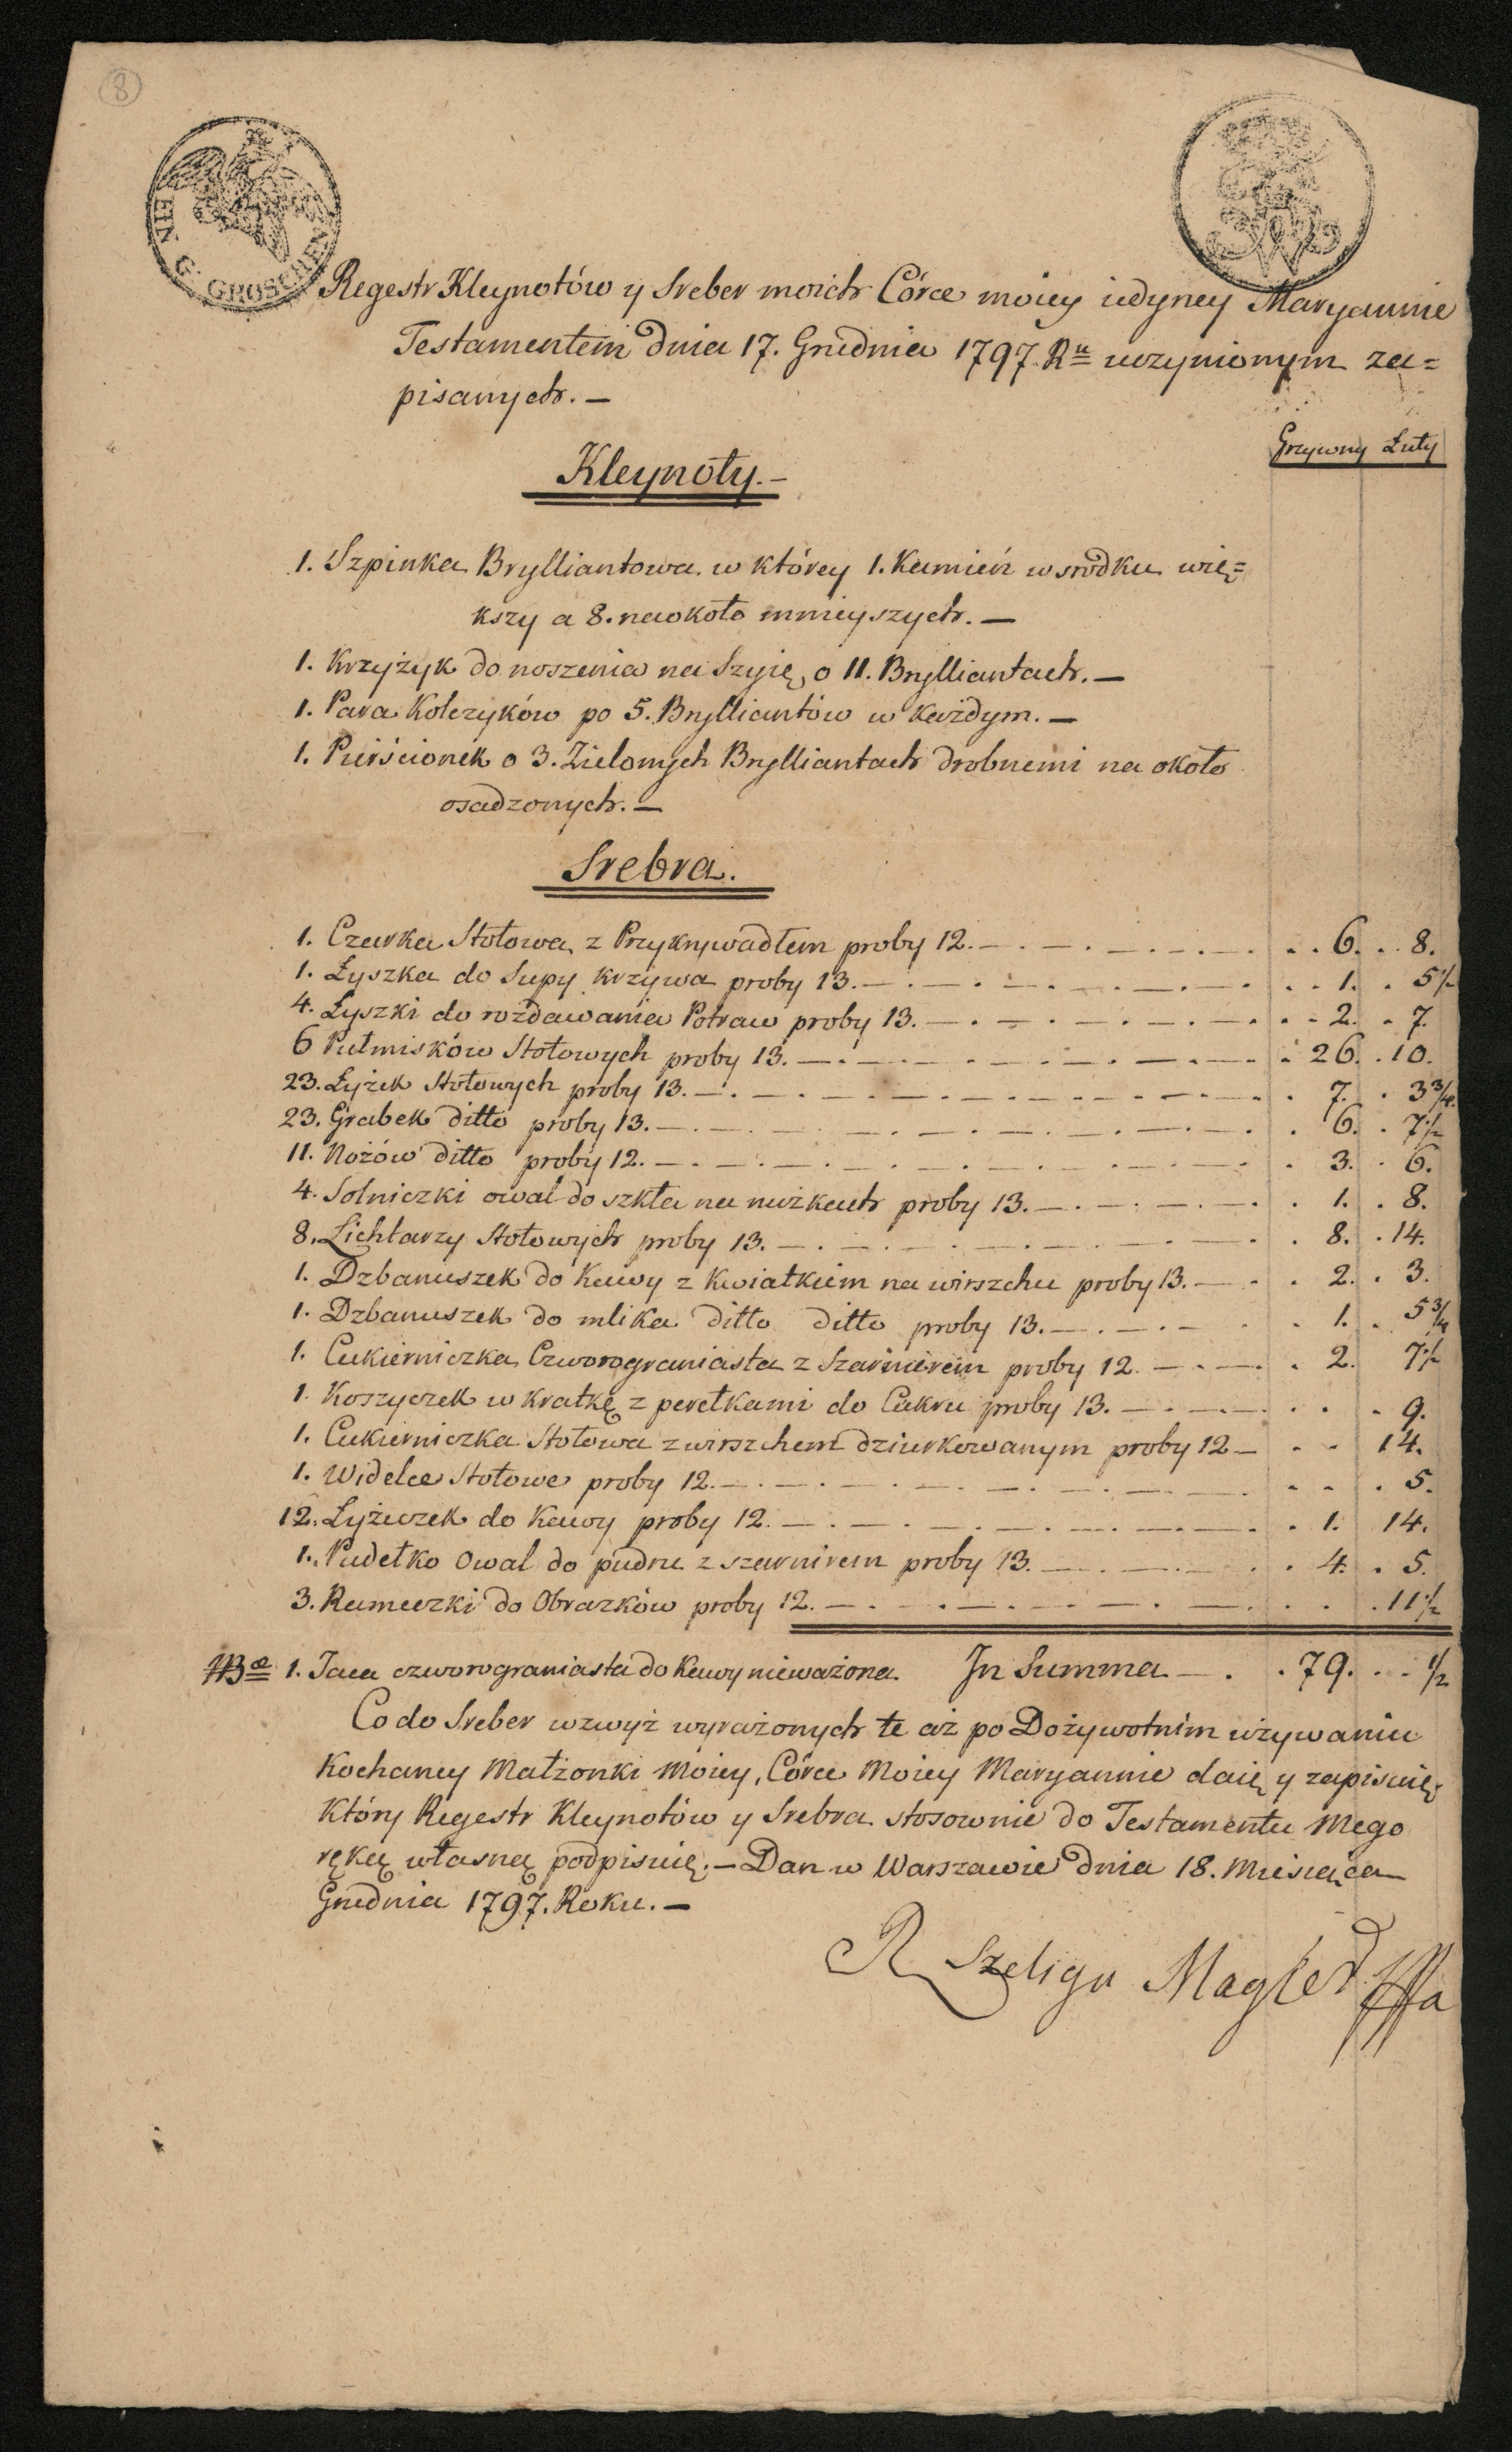 8
EIN G. GROSCHEN
Regestr Kleynotów y Sreber moich Córce moiey iedyney Maryannie
Testamentem dnia 17. Grudnia 1797. Ru uczynionym za=
pisanych. —
Grzywny Łuty
Kleynoty. —
1. Szpinka Brylliantowa w którey 1. Kamień w srodku wię=
kszy a 8. naokoło mnieyszych. —
1. Krzyżyk do noszenia na Szyię o 11. Brylliantach. —
1. Para Kolczyków po 5. Brylliantów w każdym. —
1. Pierścionek o 3. Zielonych Brylliantach drobnemi na około
osadzonych. —
Srebra.
1. Czarka Stołowa z Przykrywadłem proby 12. — 6. 8.
1. Łyszka do Supy krzywa proby 13. — 1. 5½
4. Łyszki do rozdawania Potraw proby 13. — 2. 7.
6 Pułmisków Stołowych proby 13. — 26. 10.
23. Łyżek Stołowych proby 13. — 7. 3¾.
23. Grabek ditto proby 13. — 6. 7½
11. Nożów ditto proby 12. — 3. 6.
4. Solniczki owal do szkła na nużkach proby 13. — 1. 8.
8. Lichtarzy Stołowych proby 13. — 8. 14.
1. Dzbanuszek do Kawy z kwiatkiem na wirszchu proby 13. — 2. 3.
1. Dzbanuszek do mlika ditto ditto proby 13. — 1. 5¾
1. Cukierniczka Czworograniasta z Szarnierem proby 12. — 2. 7½
1. Koszyczek w kratkę z perełkami do Cukru proby 13. — 9.
1. Cukierniczka Stołowa z wirszchem dziurkowanym proby 12 — 14.
1. Widelce Stołowe proby 12. — 5.
12. Łyżeczek do Kawy proby 12. — 1. 14.
1. Pudełko Owal do pudru z szarnirem proby 13. — 4. 5.
3. Rameczki do Obrazków proby 12. — 11½
NB 1. Taca czworograniasta do Kawy nieważona. In Summa — 79. ½
Co do Sreber wzwyż wyrażonych te aż po Dożywotnim używaniu
Kochaney Małżonki Moiey, Córce Moiey Maryannie daię y zapisuię.
Który Regestr Kleynotów y Srebra stosownie do Testamentu Mego
ręką własną podpisuię. — Dan w Warszawie dnia 18. Miesiąca
Grudnia 1797. Roku. —
R Szeliga Magier